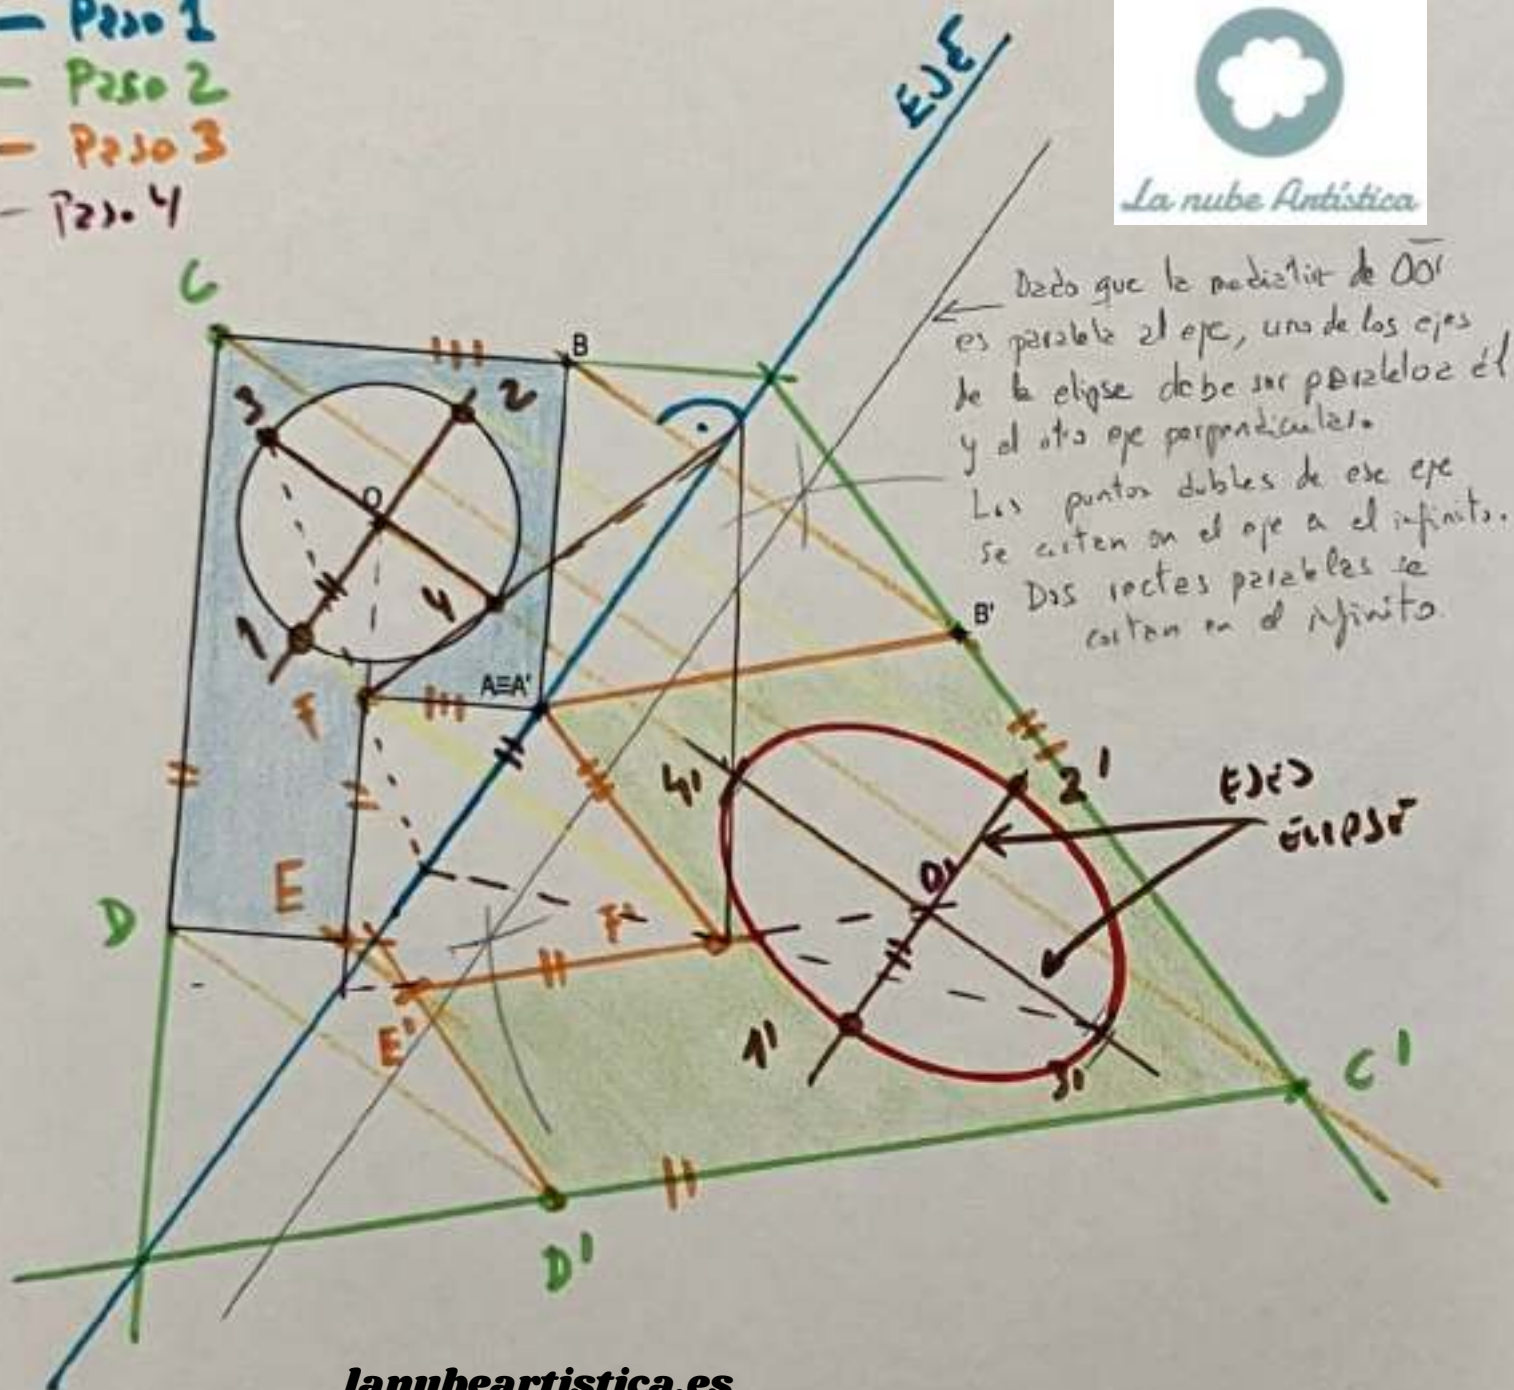 Paso 1
Paso 2
Paso 3
Paso 4
EJE
La nube Artística
C
B
3
2
O
1
4
F
A≡A'
Dado que la mediatriz de OO'
es paralela al eje, uno de los ejes
de la elipse debe ser paralelo a él
y el otro eje perpendicular.
Los puntos dobles de ese eje
se cortan en el eje en el infinito.
Dos rectas paralelas se
cortan en el infinito.
B'
4'
2'
EJES
ELIPSE
O'
D
E
F'
E'
1'
3'
C'
D'
lanubeartistica.es